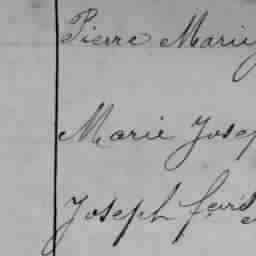 Pierre Marie
Marie Josep
Joseph